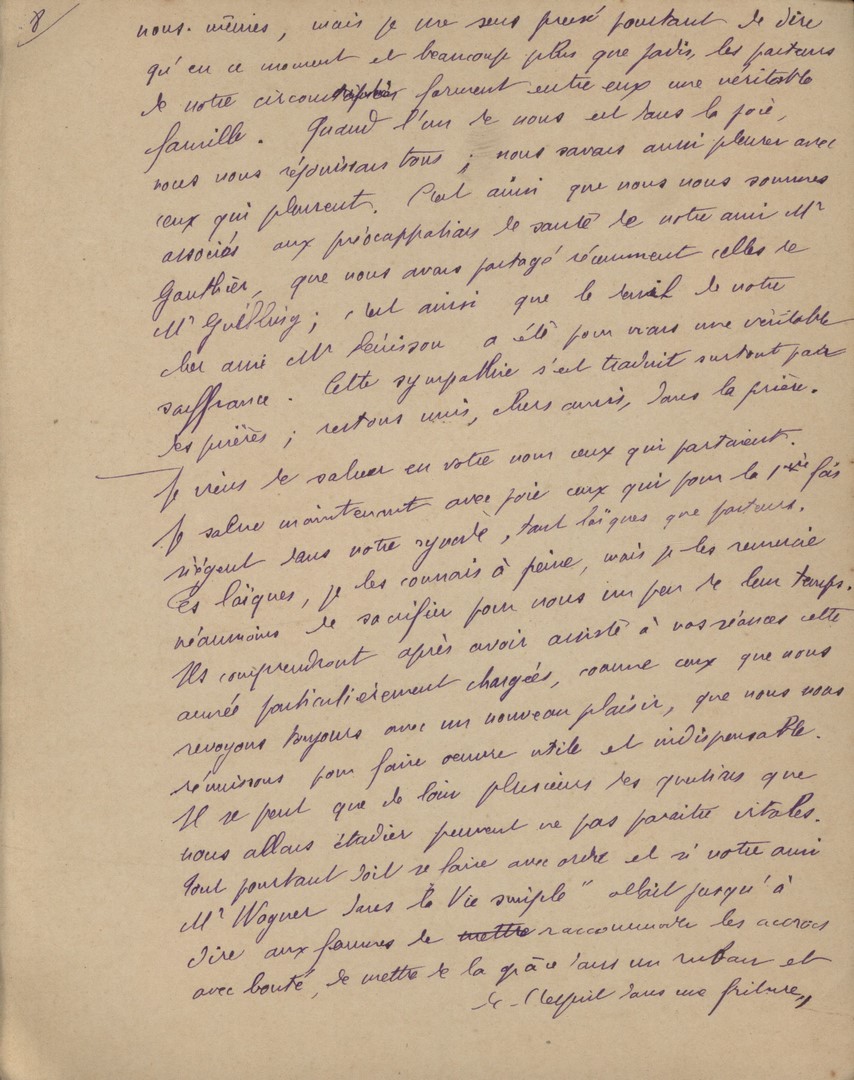 8
nous-mêmes, mais je me sens pressé pourtant de dire
qu'en ce moment et beaucoup plus que jadis, les pasteurs
de notre circonscription forment entre eux une véritable
famille. Quand l'un de nous est dans la joie,
nous nous réjouissons tous ; nous savons aussi pleurer avec
ceux qui pleurent. C'est ainsi que nous nous sommes
associés aux préoccupations de santé de notre ami Mr
Gauthier, que nous avons partagé récemment celles de
Mr ; c'est ainsi que le deuil de notre
cher ami Mr a été pour nous une véritable
souffrance. Cette sympathie s'est traduit surtout par
des prières ; restons unis, chers amis, dans la prière.
Je viens de saluer en votre nom ceux qui partaient.
Je salue maintenant avec joie ceux qui pour la 1ère fois
siègent dans notre synode, tant laïques que pasteurs.
Les laïques, je les connais à peine, mais je les remercie
néanmoins de sacrifier pour nous un peu de leur temps.
Ils comprendront après avoir assisté à nos séances cette
année particulièrement chargées, comme ceux que nous
revoyons toujours avec un nouveau plaisir, que nous nous
réunissons pour faire oeuvre utile et indispensable.
Il se peut que de loin plusieurs des questions que
nous allons étudier peuvent ne pas paraître vitales.
Tout pourtant doit se faire avec ordre et si notre ami
Mr Wagner dans la Vie simple" allait jusqu'à
dire aux femmes de mettre raccommoder les accrocs
avec bonté, de mettre de la grâce dans un ruban et
de l'esprit dans une friture,,